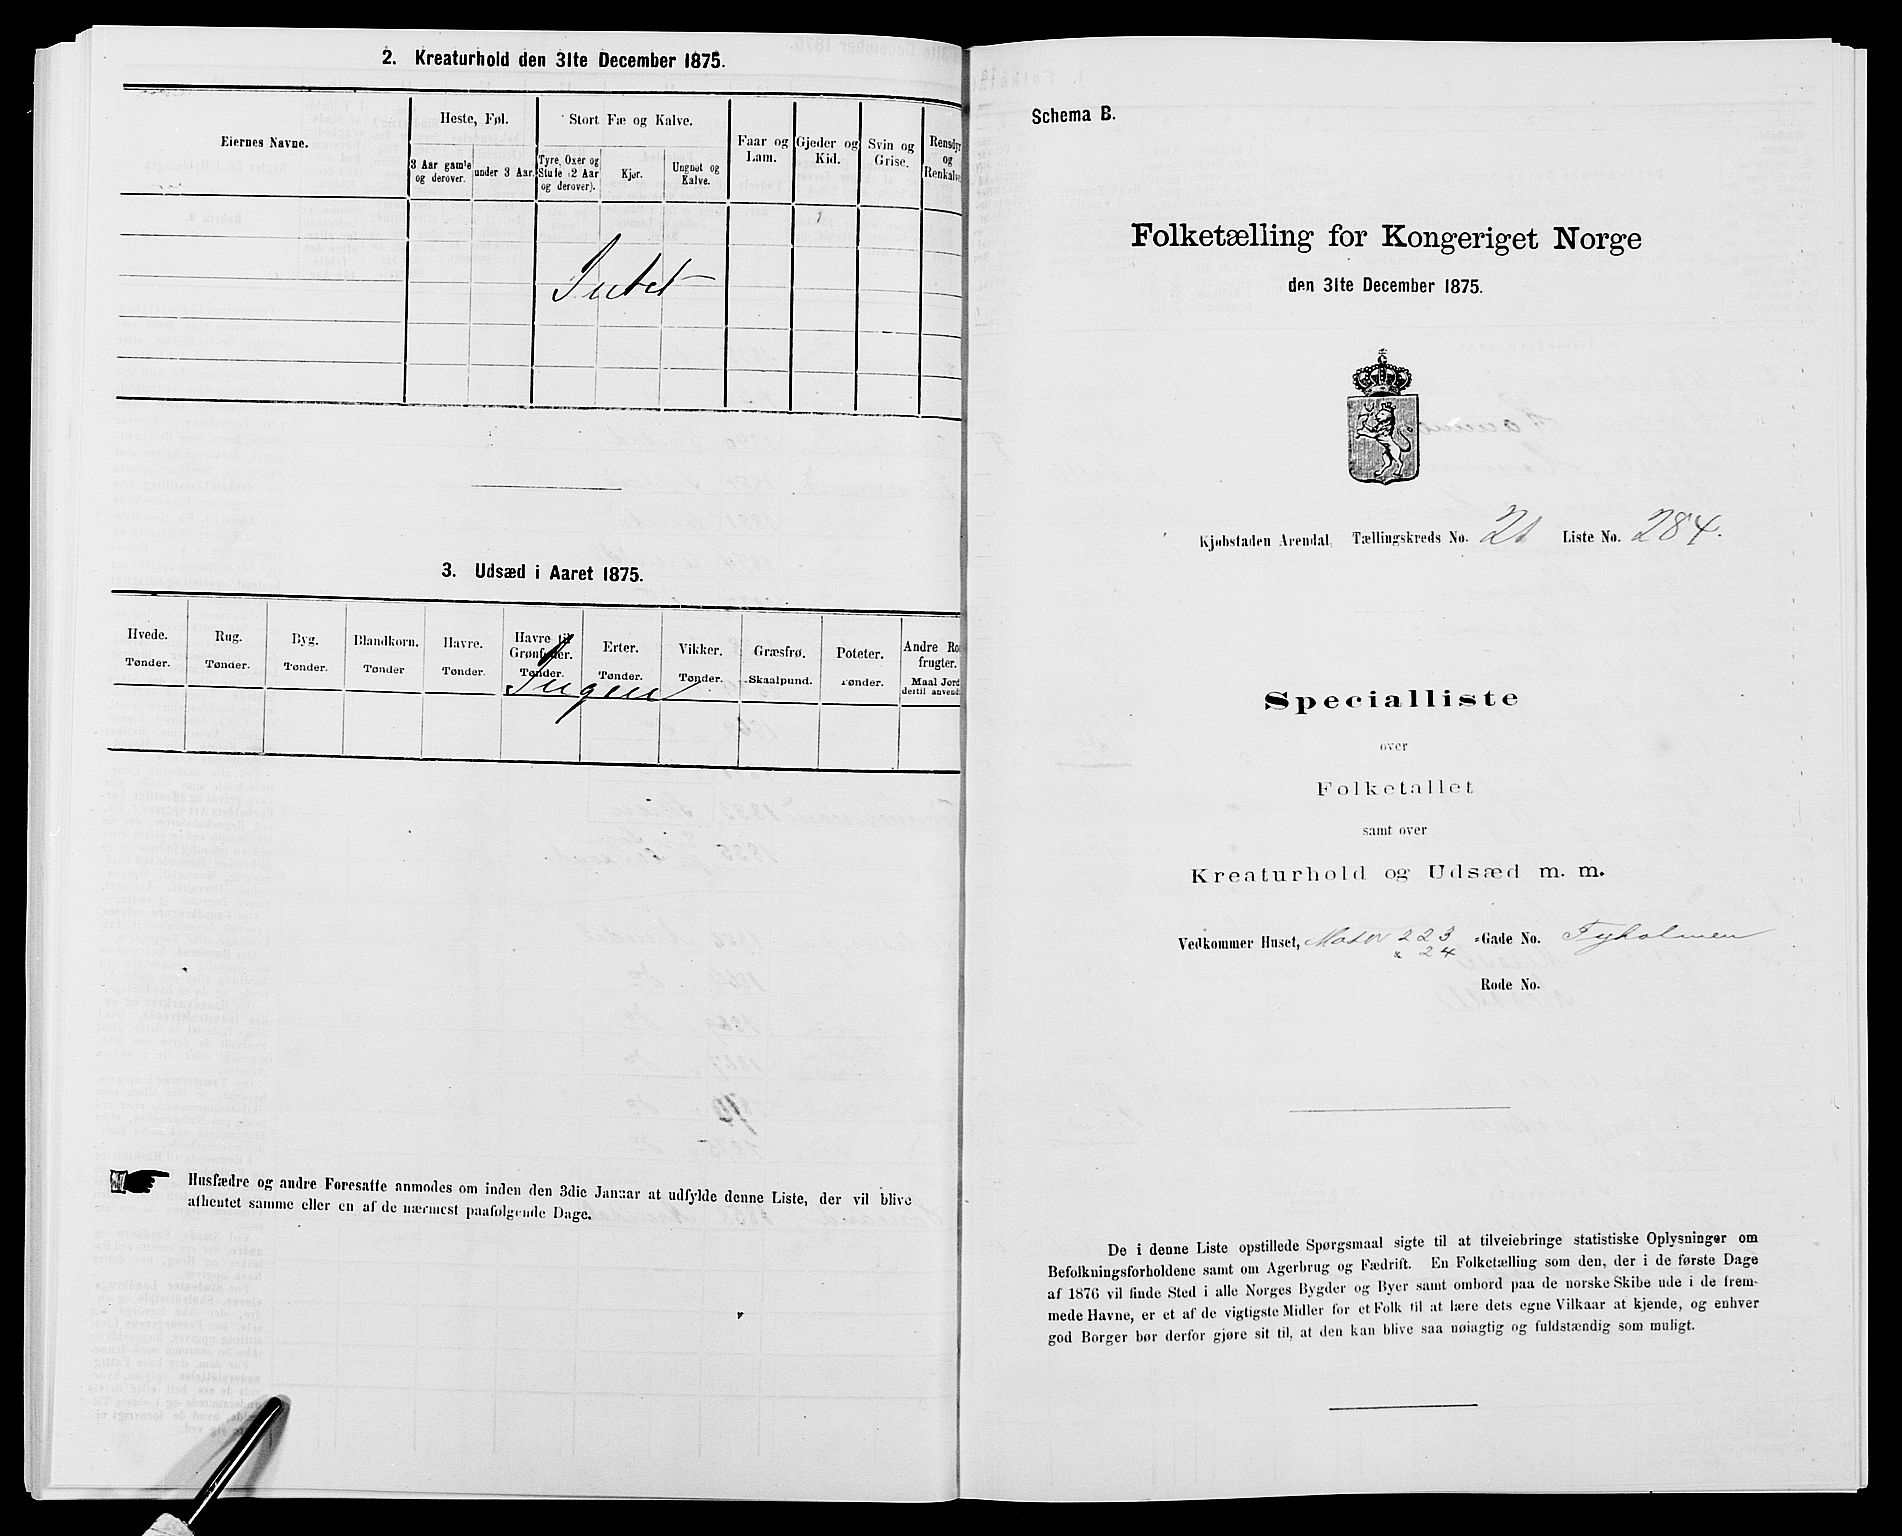 2. Kreaturhold den 31te December 1875.
Eiernes Navne.
Heste, Føl.
3 Aar gamle og derover.
under 3 Aar.
Stort Fæ og Kalve.
Tyre, Oxer og Stude (2 Aar og derover).
Kjør.
Ungnøt og Kalve.
Faar og Lam.
Gjeder og Kid.
Svin og Grise.
Rensdyr og Renkalve
Intet
3. Udsæd i Aaret 1875.
Hvede. Tønder.
Rug. Tønder.
Byg. Tønder.
Blandkorn. Tønder
Havre. Tønder.
Havre til Grønfoder. Tønder.
Erter. Tønder.
Vikker. Tønder.
Græsfrø. Skaalpund.
Poteter. Tønder.
Andre Ro frugter. Maal Jord dertil anvend
Ingen
Husfædre og andre Foresatte anmodes om inden den 3die Januar at udfylde denne Liste, der vil blive
afhentet samme eller en af de nærmest paafølgende Dage.
Schema B.
Folketælling for Kongeriget Norge
den 31te December 1875.
Kjøbstaden Arendal, Tællingskreds No. 21 Liste No. 284.
Specialliste
over
Folketallet
samt over
Kreaturhold og Udsæd m. m.
Vedkommer Huset, Mater 223 Gade No. Tyholmen
" 24
Rode No.
De i denne Liste opstillede Spørgsmaal sigte til at tilveiebringe statistiske Oplysninger om
Befolkningsforholdene samt om Agerbrug og Fædrift. En Folketælling som den, der i de første Dage
af 1876 vil finde Sted i alle Norges Bygder og Byer samt ombord paa de norske Skibe ude i de frem-
mede Havne, er et af de vigtigste Midler for et Folk til at lære dets egne Vilkaar at kjende, og enhver
god Borger bør derfor gjøre sit til, at den kan blive saa nøiagtig og fuldstændig som muligt.